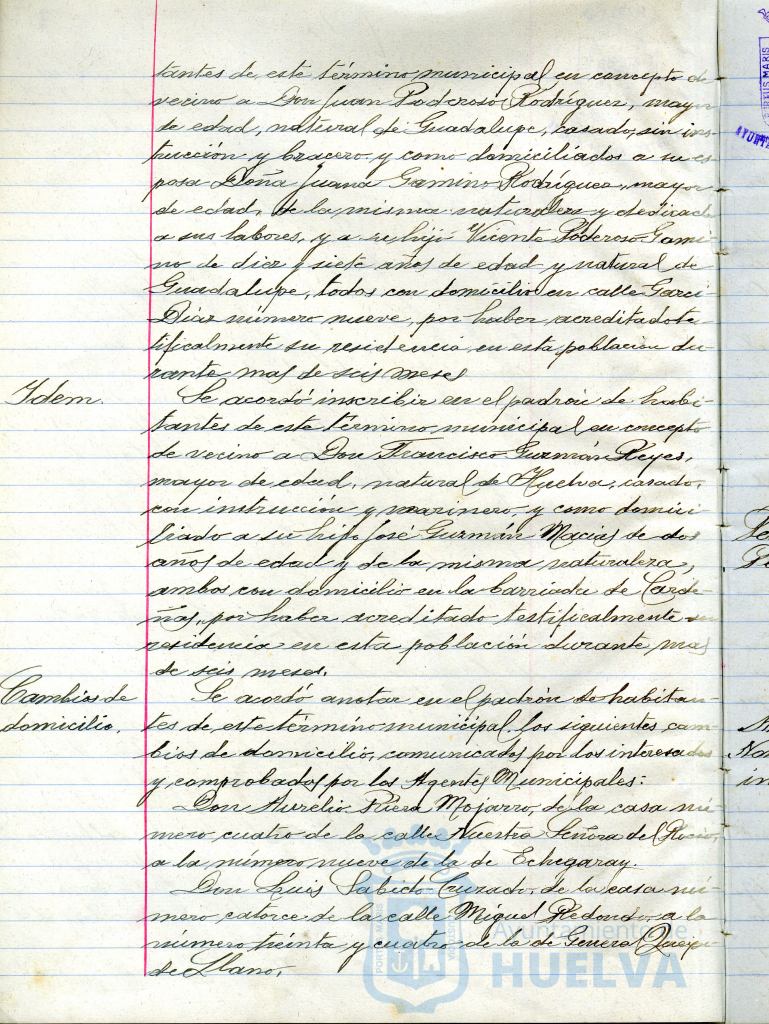 tantes de este término municipal en concepto de
vecino a Don Juan Poderoso Rodríguez, mayor
de edad, natural de Guadalupe, casado, sin ins-
trucción y bracero y como domiciliados a su es-
posa Doña Juana Gamino Rodríguez, mayor
de edad, de la misma naturaleza y dedicada
a sus labores, y a su hijo Vicente Poderoso Gami-
no de diez y siete años de edad y natural de
Guadalupe, todos con domicilio en calle Garci-
Díaz número nueve, por haber acreditado tes-
tificalmente su residencia en esta población du-
rante mas de seis meses
Idem.
Se acordó inscribir en el padrón de habi-
tantes de este término municipal en concepto
de vecino a Don Francisco Guzmán Reyes,
mayor de edad, natural de Huelva, casado,
con instrucción y marinero, y como domici-
liado a su hijo José Guzmán Macias de dos
años de edad y de la misma naturaleza,
ambos con domicilio en la barriada de Carde-
ñas, por haber acreditado testificalmente su
residencia en esta población durante mas
de seis meses.
Cambios de
domicilio.
Se acordó anotar en el padrón de habitan-
tes de este término municipal los siguientes cam-
bios de domicilio, comunicados por los interesados
y comprobados por los Agentes Municipales:
Don Aurelio Riera Mojarro, de la casa nú-
mero cuatro de la calle Nuestra Señora del Rocio,
a la número nueve de la de Echegaray.
Don Luis Sabido Cruzado, de la casa nú-
mero catorce de la calle Miguel Redondo, a la
número treinta y cuatro de la de General Queipo
de Llano.
Ayuntamiento de
HUELVA